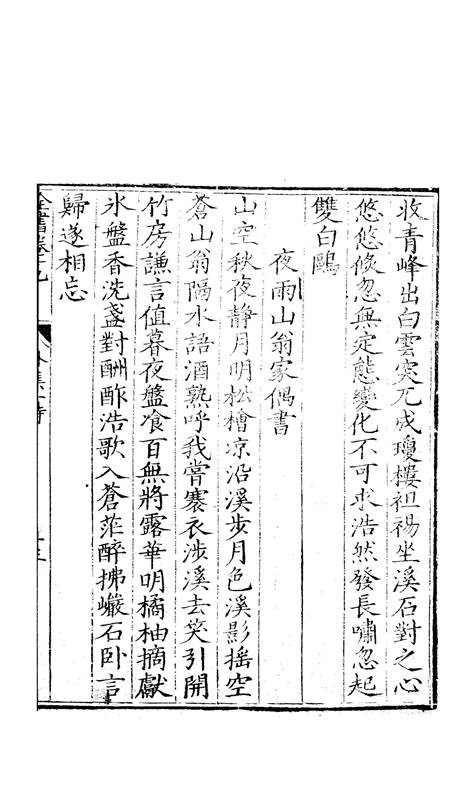 收青峰出白雲突兀成瓊樓袒裼坐溪石對之心
悠悠倐忽無定態變化不可求浩然發長嘯忽起
雙白鷗
夜雨山翁家偶書
山空秋夜靜月明松檜凉沿溪步月色溪影摇空
蒼山翁隔水語酒熟呼我嘗褰衣涉溪去笑引開
竹房謙言值暮夜盤飧百無將露華明橘柚摘獻
氷盤香洗盞對酬酢浩歌入蒼茫醉拂巖石卧言
歸遂相忘
全書卷十九